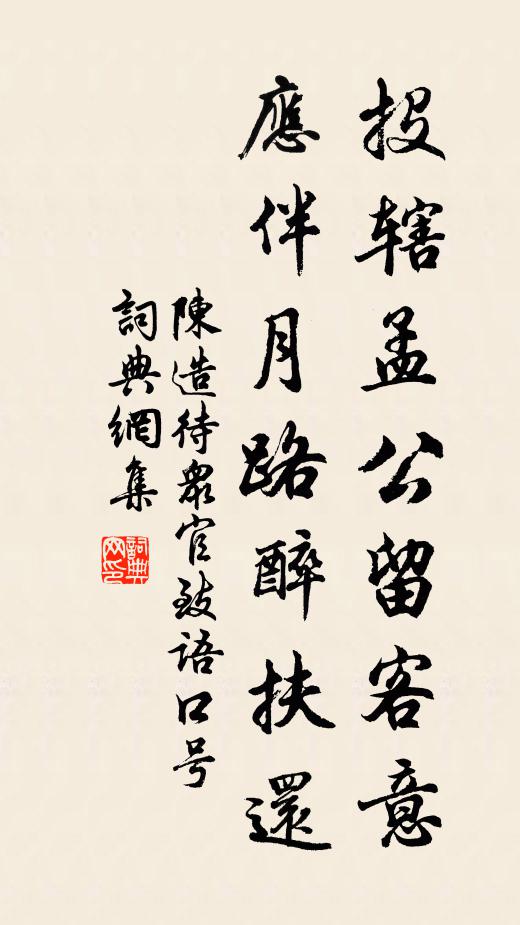 投辖孟公留客意
應伴月路醉扶還
陳造待眾官致語口号
詞典網集
詞典网印